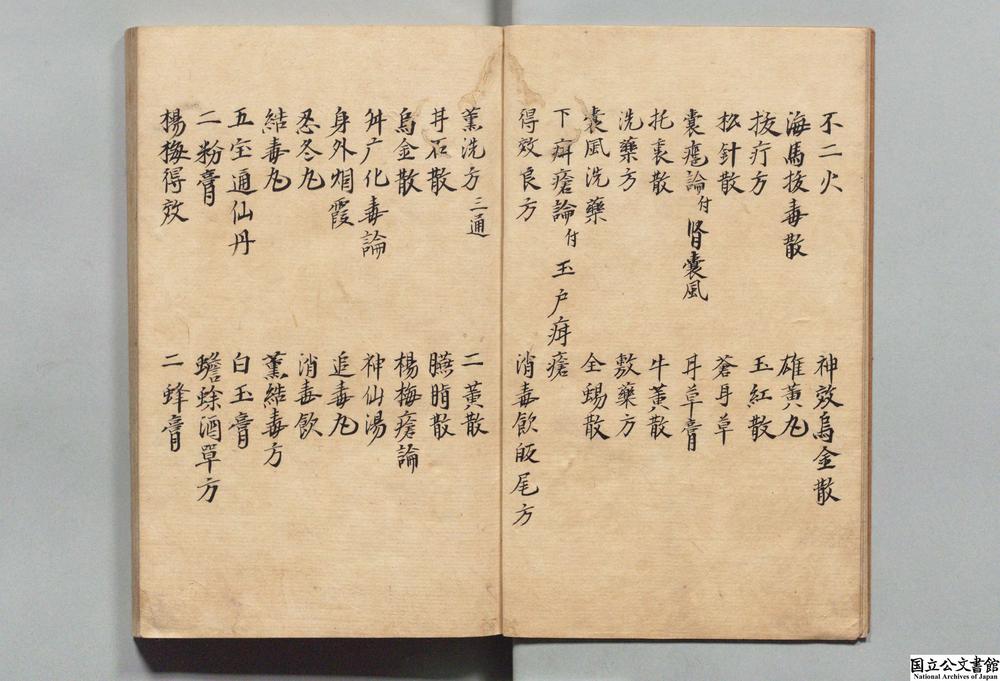 不二火　神效烏金散
海馬拔毒散　雄黄丸
拔疔方　玉紅散
松針散　蒼耳草
囊癰論付腎囊風　耳草膏
托裏散　牛黄散
洗藥方　敷藥方
囊風洗藥　全蝎散
下疳瘡論付玉戸疳瘡
得效良方　消毒飲皈尾方
薫洗方三通　二黄散
丼石散　臙脂散
烏金散　楊梅瘡論
舛广化毒論　神仙湯
身外烟霞　追毒丸
忍冬丸　消毒飲
結毒丸　薫結毒方
五宝通仙丹　白玉膏
二粉膏　蟾蜍酒單方
楊梅得效　二蜂膏
国立公文書館
National Archives of Japan